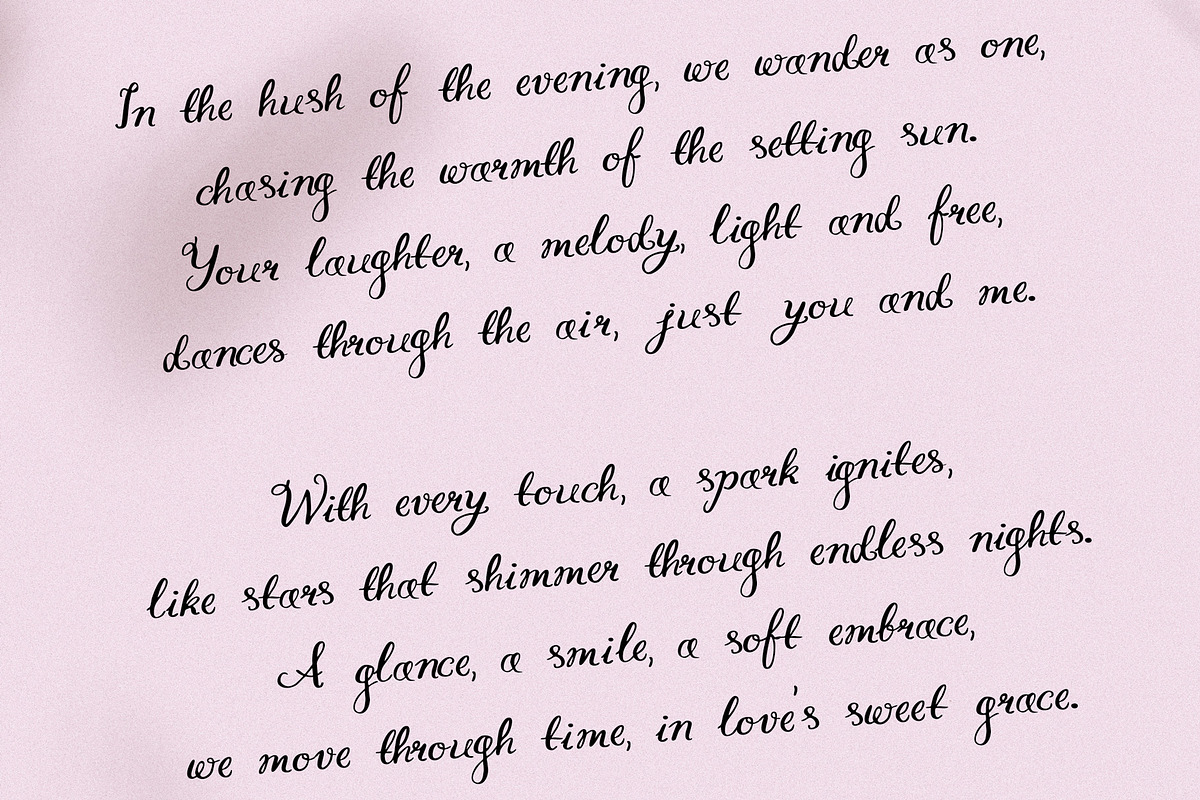 In the hush of the evening, we wander as one,
chasing the warmth of the setting sun.
Your laughter, a melody, light and free,
dances through the air, just you and me.
With every touch, a spark ignites,
like stars that shimmer through endless nights.
A glance, a smile, a soft embrace,
we move through time, in love's sweet grace.